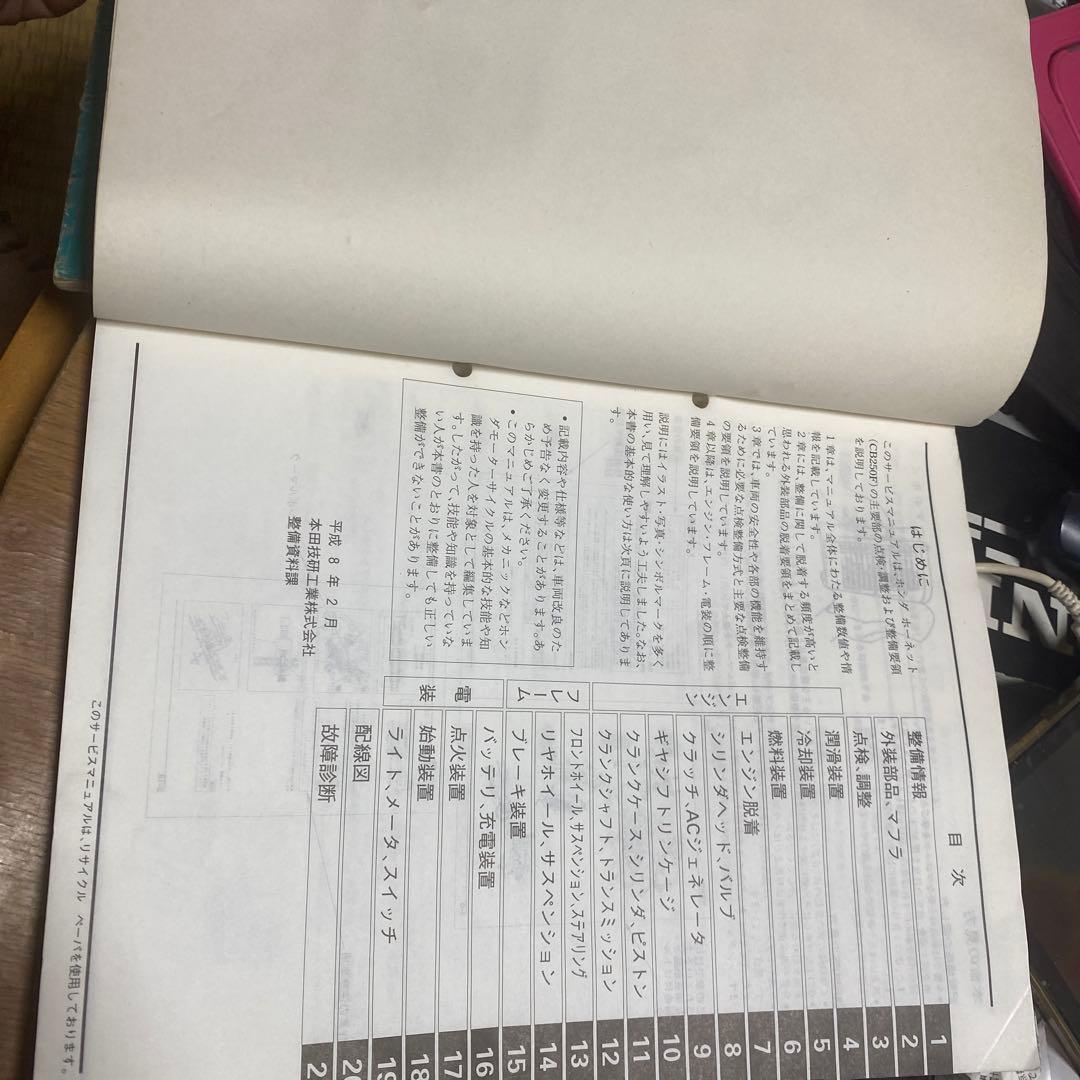 はじめに
このサービスマニュアルは、ホンダ ホーネット
(CB250F)の主要部の点検・調整および整備要領
を説明しております。
1 章は、マニュアル全体にわたる整備数値や情
報を記載しています。
2 章には、整備に関して脱着する頻度が高いと
思われる外装部品の脱着要領をまとめて記載し
ています。
3 章では、車両の安全性や各部の機能を維持す
るために必要な点検整備方式と主要な点検整備
の要領を説明しています。
4 章以降は、エンジン・フレーム・電装の順に整
備要領を説明しています。
説明にはイラスト・写真・シンボルマークを多く
用い、見て理解しやすいよう工夫しました。なお、
本書の基本的な使い方は次頁に説明してありま
す。
• 記載内容や仕様等などは、車両改良のた
め予告なく変更することがあります。あ
らかじめご了承ください。
• このマニュアルは、メカニックなどホン
ダモーターサイクルの基本的な技能や知
識を持った人を対象として編集していま
す。したがって、技能や知識を持っていな
い人が本書のとおりに整備しても正しい
整備ができないことがあります。
平成 8 年 2 月
本田技研工業株式会社
整備資料課
目 次
整備情報 1
外装部品、マフラ 2
点検、調整 3
エンジン
潤滑装置 4
冷却装置 5
燃料装置 6
エンジン脱着 7
シリンダヘッド、バルブ 8
クラッチ、ACジェネレータ 9
ギヤシフトリンケージ 10
クランクケース、シリンダ、ピストン 11
クランクシャフト、トランスミッション 12
フレーム
フロントホイール、サスペンション、ステアリング 13
リヤホイール、サスペンション 14
ブレーキ装置 15
電装
バッテリ、充電装置 16
点火装置 17
始動装置 18
ライト、メータ、スイッチ 19
配線図 20
故障診断 2
このサービスマニュアルは、リサイクル ペーパを使用しております。